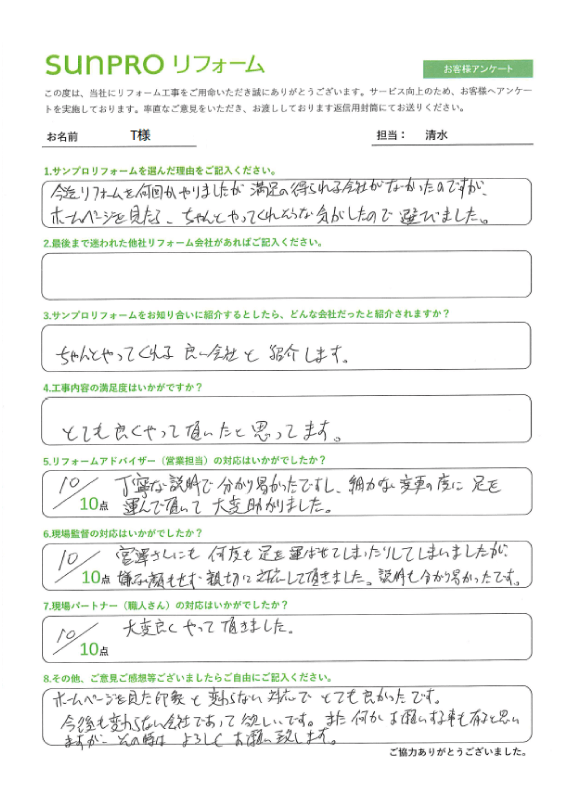 SUNPRO リフォーム
お客様アンケート
この度は、当社にリフォーム工事をご用命いただき誠にありがとうございます。サービス向上のため、お客様へアンケー
トを実施しております。率直なご意見をいただき、お渡ししております返信用封筒にてお送りください。
お名前 T様 担当： 清水
1.サンプロリフォームを選んだ理由をご記入ください。
今迄リフォームを何回かやりましたが 満足の得られる会社がなかったのですが、
ホームページを見たら、ちゃんとやってくれそうな気がしたので 選びました。
2.最後まで迷われた他社リフォーム会社があればご記入ください。
3.サンプロリフォームをお知り合いに紹介するとしたら、どんな会社だったと紹介されますか？
ちゃんとやってくれる 良い会社 と 紹介します。
4.工事内容の満足度はいかがですか？
とても良くやって頂いたと思ってます。
5.リフォームアドバイザー（営業担当）の対応はいかがでしたか？
10/10点 丁寧な説明で分かり易かったですし、細かな変更の度に 足を
運んで頂いて 大変助かりました。
6.現場監督の対応はいかがでしたか？
10/10点 宮澤さんにも 何度も足を運ばせてしまったりしてしまいましたが、
嫌な顔もせず 親切に対応して頂きました。説明も分かり易かったです。
7.現場パートナー（職人さん）の対応はいかがでしたか？
10/10点 大変良くやって頂きました。
8.その他、ご意見ご感想等ございましたらご自由にご記入ください。
ホームページを見た印象と変わらない対応で とても良かったです。
今後も変わらない会社であって欲しいです。また何かお願いする事も有ると思い
ますが、その時は よろしくお願い致します。
ご協力ありがとうございました。